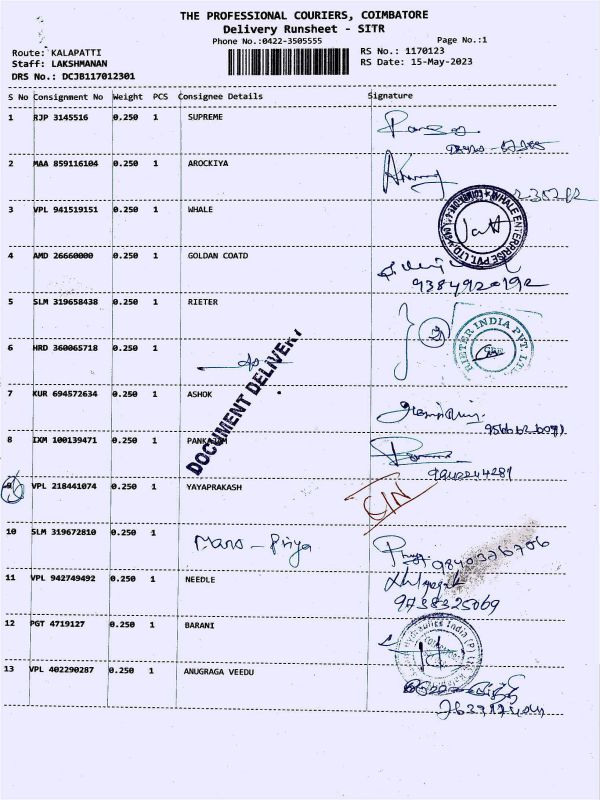 THE PROFESSIONAL COURIERS, COIMBATORE
Delivery Runsheet - SITR
Phone No.:0422-3505555 Page No.:1
Route: KALAPATTI RS No.: 1170123
Staff: LAKSHMANAN RS Date: 15-May-2023
DRS No.: DCJB117012301
S No Consignment No Weight PCS Consignee Details Signature
1 RJP 3145516 0.250 1 SUPREME
2 MAA 859116104 0.250 1 AROCKIYA
3 VPL 941519151 0.250 1 WHALE
WHALE ENTERPRISE PVT. LTD.
4 AMD 26660000 0.250 1 GOLDAN COATD
9384920192
5 SLM 319658438 0.250 1 RIETER
RIETER INDIA PVT. LTD.
6 HRD 360065718 0.250 1
DOCUMENT DELIVERY
7 KUR 694572634 0.250 1 ASHOK
8 IXM 100139471 0.250 1 PANKAJAM
9942244281
9 VPL 218441074 0.250 1 YAYAPRAKASH
CIN
10 SLM 319672810 0.250 1 Mano - Priya
Priya 9840376706
11 VPL 942749492 0.250 1 NEEDLE
9738325069
12 PGT 4719127 0.250 1 BARANI
13 VPL 402290287 0.250 1 ANUGRAGA VEEDU